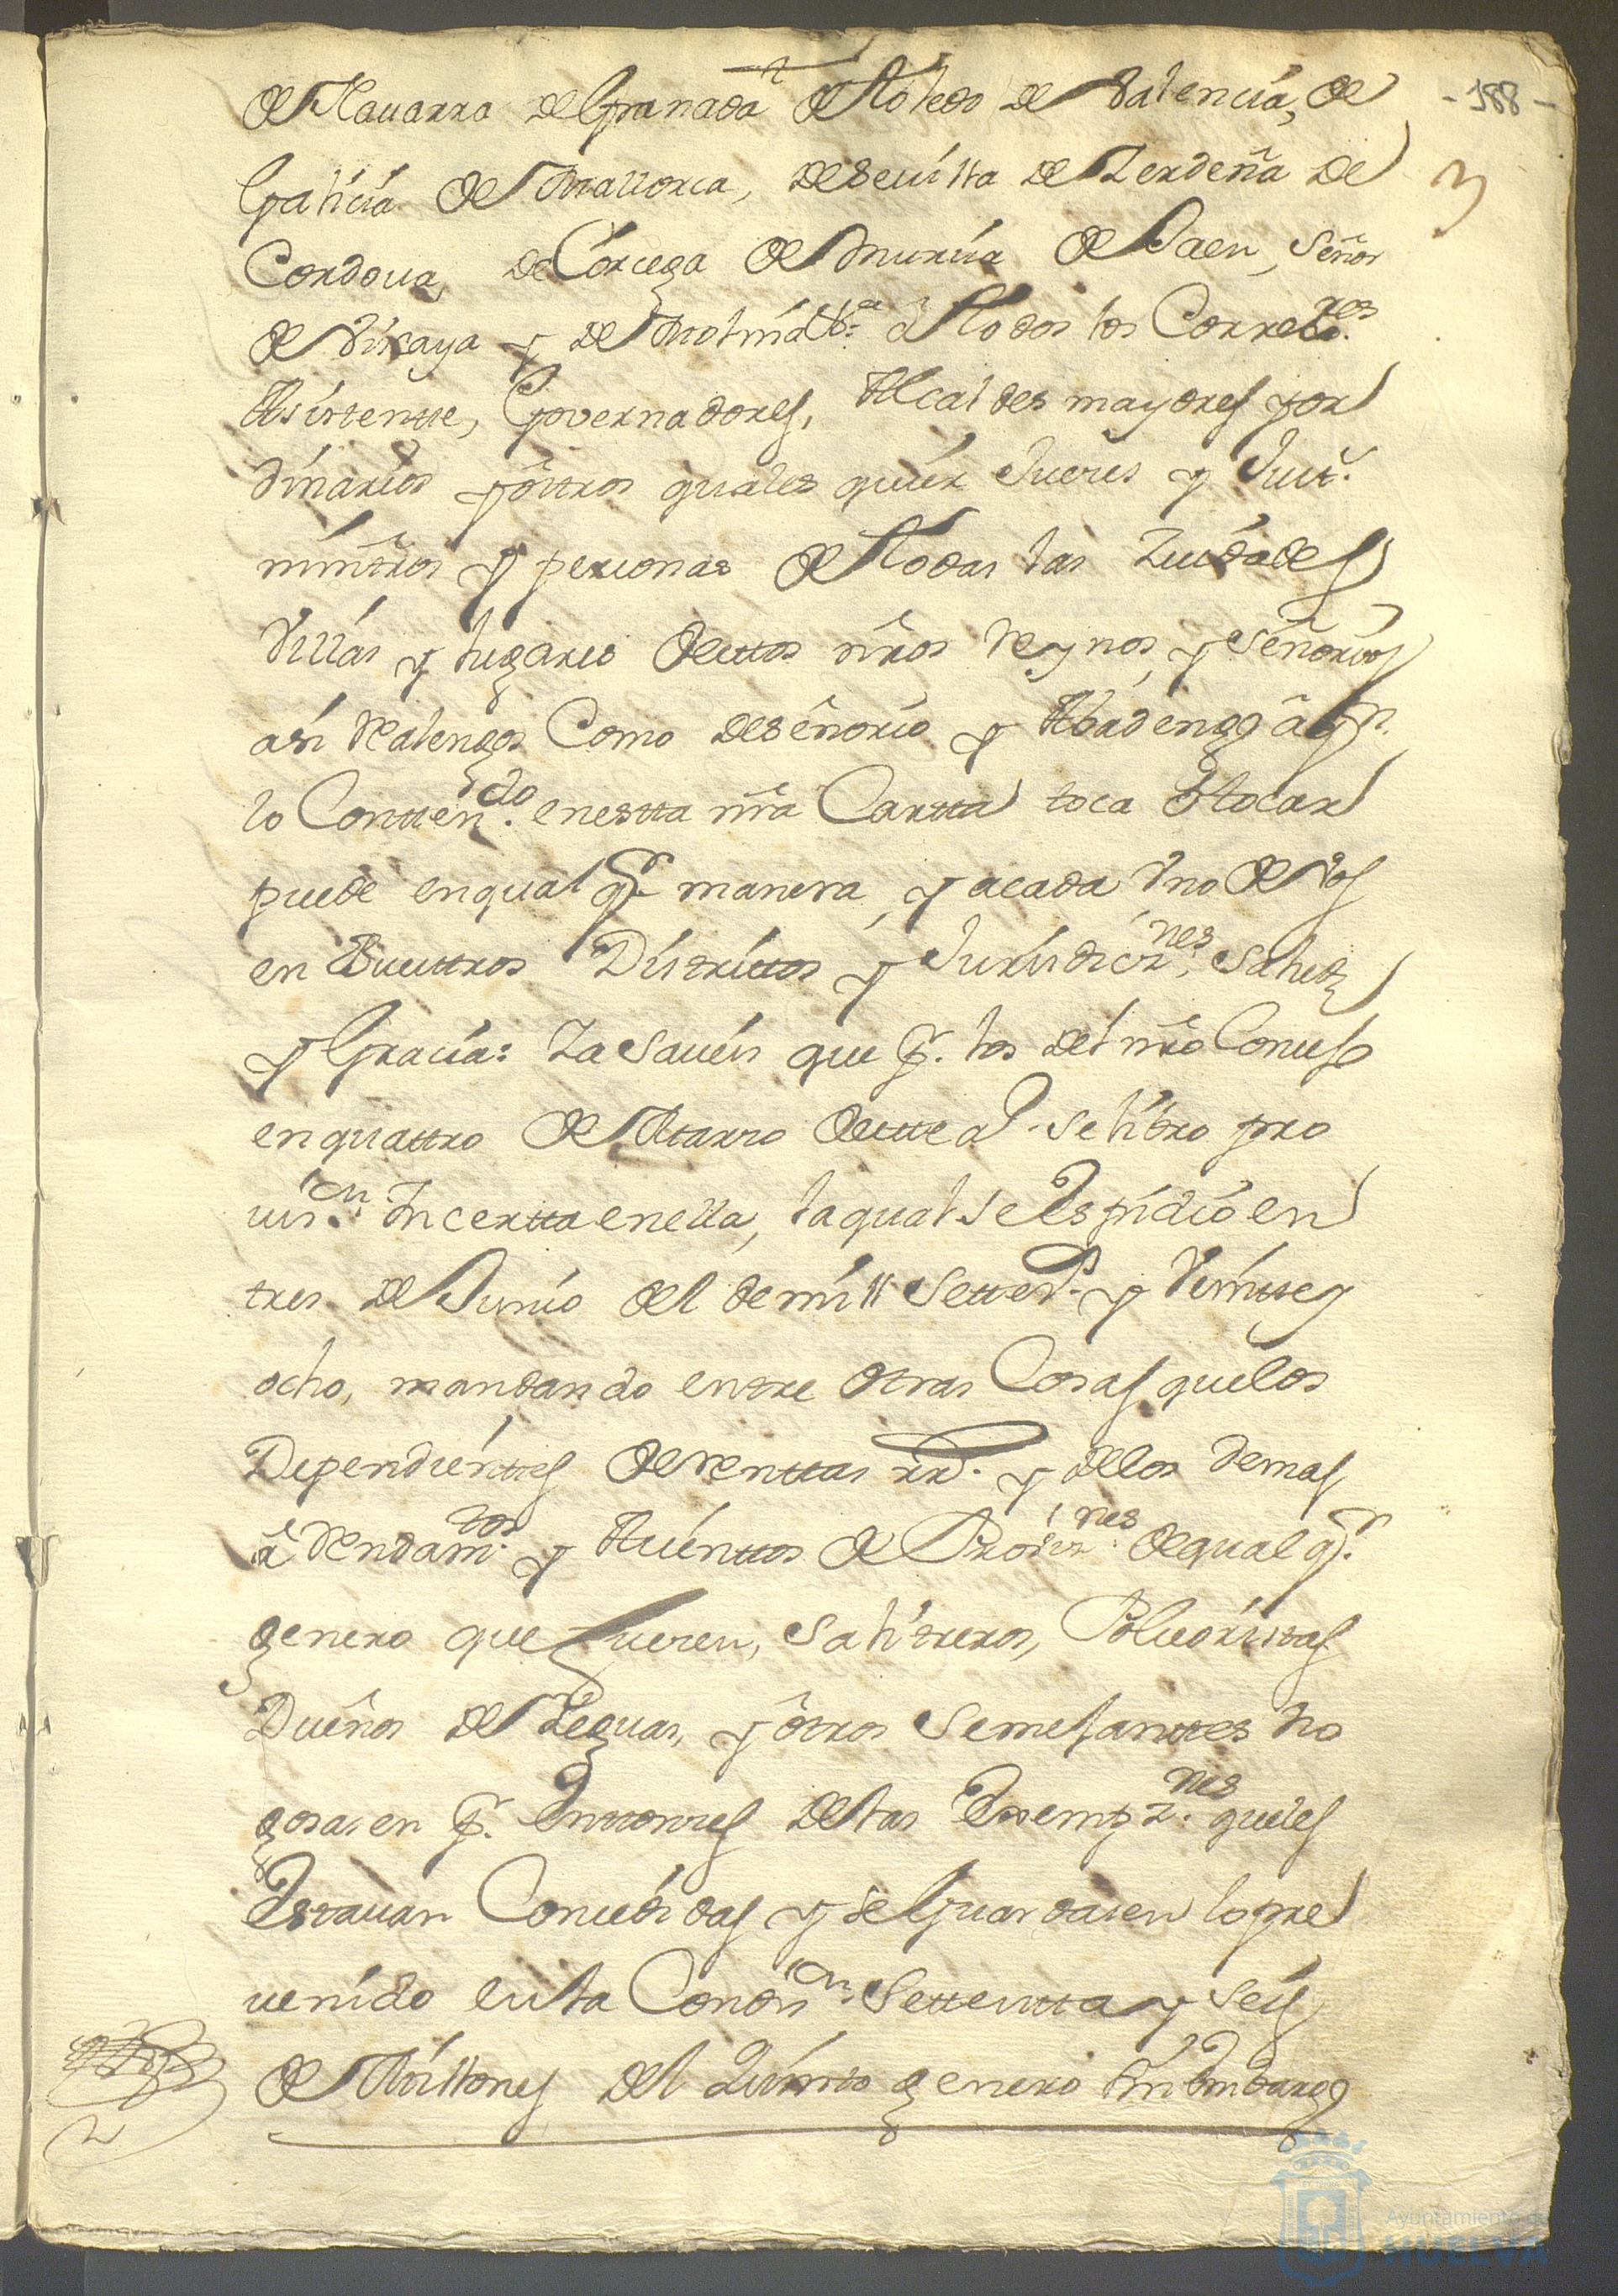 de Nauarra de Granada de Toledo de Valencia, de
- 188 -
3
Galicia de Mallorca, de Seuilla de Zerdeña de
Cordoua, de Corcega de Murcia de Jaen, Señor
de Vizcaya y de Molina &.ª a Todos los Correxres.
Asistentte, Governadores, Alcaldes mayores y or
dinarios y ôtros quales quier Jueces y Just.
ministros y personas de Todas las Ziudades
Villas y lugares destos nrôs Reynos, y señorios
asi Realengos Como de señorio y Abadengo â qn.
lo Conttendo. enestta nrâ Cartta toca ô tocar
puede enqual qr manera, y acada Vno de Vos
en Vuestros Disttrittos y Jurisdicznes. Salud
y Gracia: Ya Saueis que pr. los del nrô Consejo
en quattro de Marzo deste a. se libro pro
uison. Incertta enella, la qual se Espidio en
tres de Junio del de mill Settez.s y Veintte y
ocho, mandando entre otras Cosas que los
Dependientes de renttas rrs. y de los demas
â Rendamtos. y Asienttos de Prouiznes. de qual qr.
genero que fueren, Salitreros, Poluoristas
Dueños de Yeguas, y ôtros Semejanttes no
gosasen pr. Enttonces de las Exempznes. que les
Estauan Concedidas y se Guardasen lo pre
uenido en la Condison. Settentta y Seis
de Millones del Quinto genero Sin Embargo
Ayuntamiento de
HUELVA